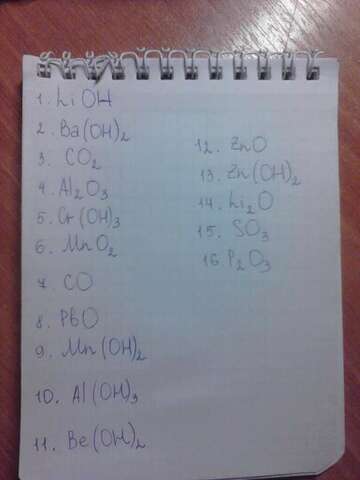 1. LiOH
2. Ba(OH)₂
3. CO₂
4. Al₂O₃
5. Cr(OH)₃
6. MnO₂
7. CO
8. PbO
9. Mn(OH)₂
10. Al(OH)₃
11. Be(OH)₂
12. ZnO
13. Zn(OH)₂
14. Li₂O
15. SO₃
16. P₂O₃